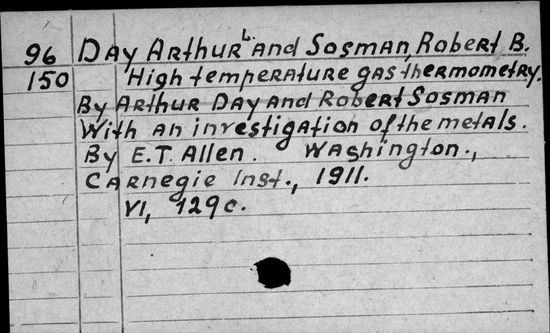 96 DAY ARTHUR L. And SOSMAN, Robert B.
150 High temperature gas thermometry.
By ARTHUR DAY And Robert SOSMAN
With an investigation of the metals.
By E.T. Allen. Washington.,
CARnegie Inst., 1911.
VI, 129c.